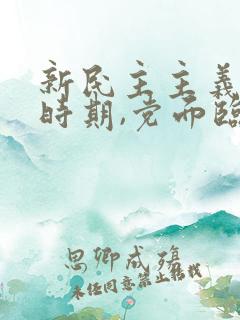 新民主主義
時期,党面臨
思卿成殤
未经同意禁止转载